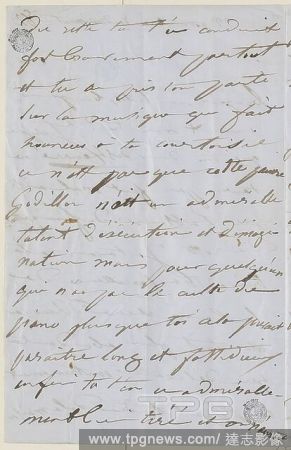 Du reste tu t'es conduit
fort bravement partout
et tu as pris ton parti
sur la musique qui fait
honneur à ta courtoisie
ce n'est pas que cette pauvre
Godillon n'ait un admirable
talent d'exécution et d'imagi
nation mais pour quelqu'un
qui n'a pas le culte du
piano plus que toi cela pouvait
paraître long et fastidieux
enfin tu t'en es admirable
ment tiré et
TPG
www.tpgnews.com / 達志影像